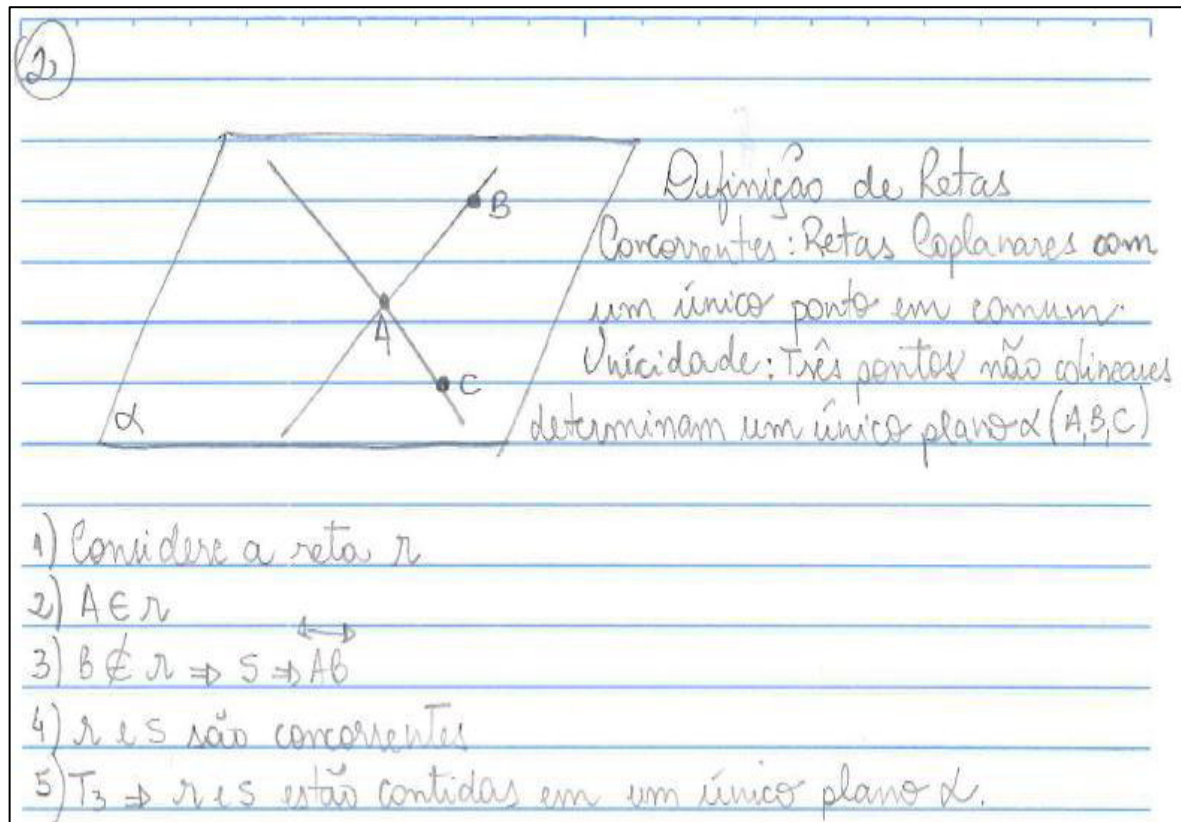 2)
B
A
C
α
Definição de Retas
Concorrentes: Retas Coplanares com
um único ponto em comum.
Unicidade: Três pontos não colineares
determinam um único plano α (A,B,C)
1) Considere a reta r
2) A ∈ r
3) B ∉ r ⇒ S ⇒ AB
4) r e s são concorrentes
5) T3 ⇒ r e s estão contidas em um único plano α.